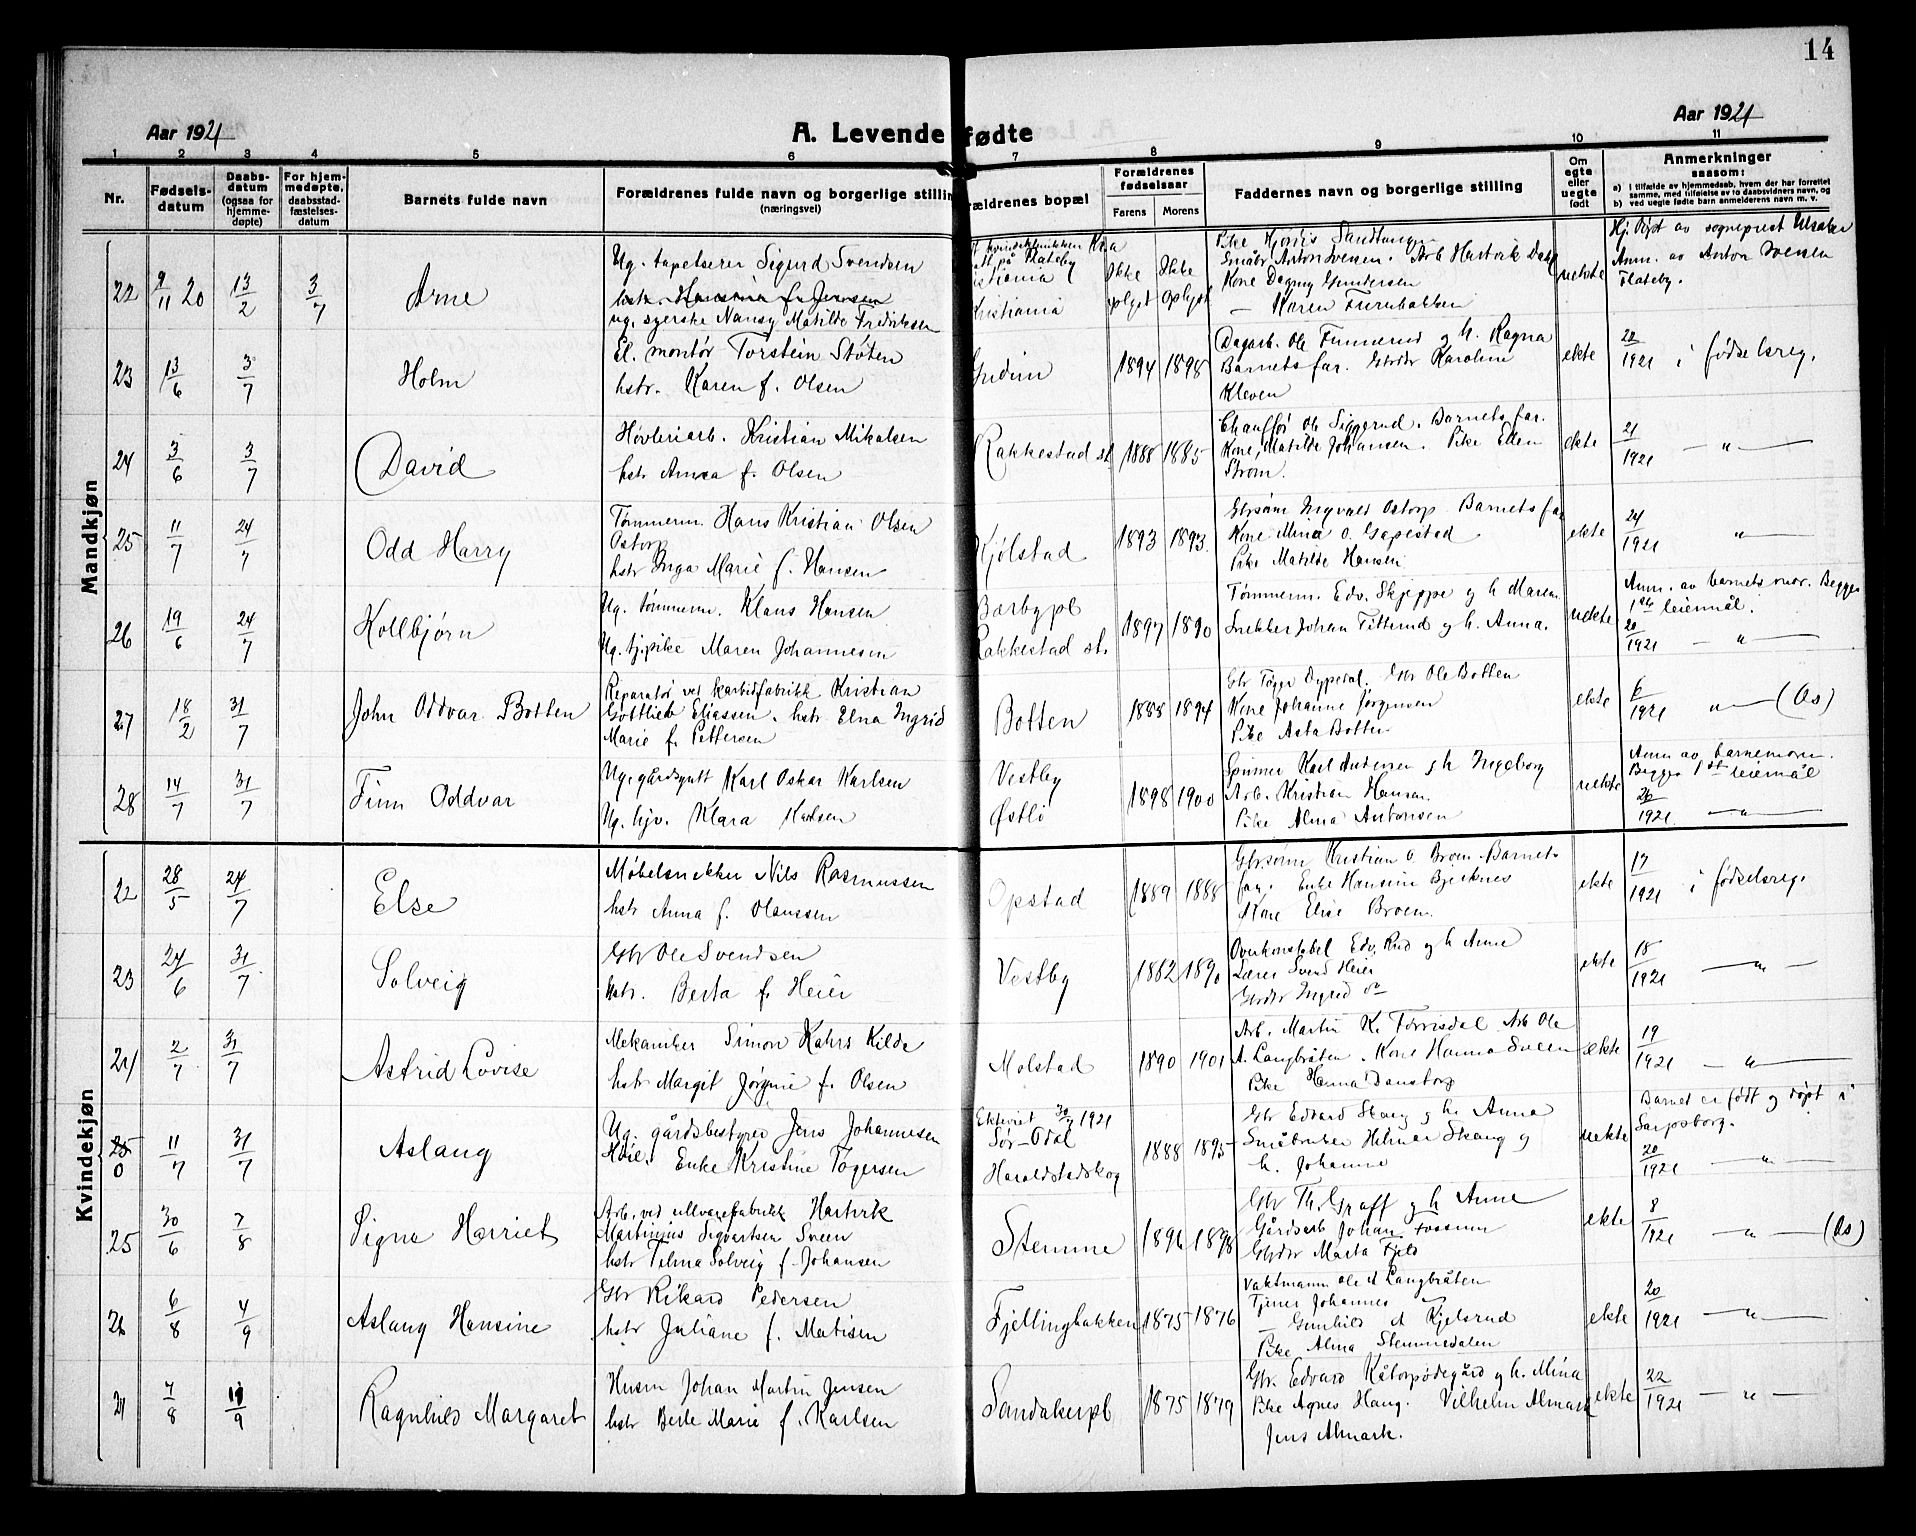 14
Aar 1921
A. Levende fødte
Aar 1921
1 2 3 4 5 6 7 8 9 10 11
Nr.
Fødsels-
datum
Daabs-
datum
(ogsaa for
hjemme-
døpte)
For hjem-
medøpte,
daabsstad-
fæstelses-
datum
Barnets fulde navn
Forældrenes fulde navn og borgerlige stilling
(næringsvei)
ældrenes bopæl
Forældrenes
fødselsaar
Farens
Morens
Faddernes navn og borgerlige stilling
Om
egte
eller
uegte
født
Anmerkninger
saasom:
a) I tilfælde av hjemmedaab, hvem der har forrettet
samme, med tilføielse av to daabsvidners navn, og
b) ved uegte fødte barn anmelderens navn m. v.
Mandkjøn
22 9/11 20 13/2 3/7 Arne
Ug. tapetserer Sigurd Svendsen
hstr. Hansine f. Jensen
ug. syerske Nansy Matilde Fredriksen
på Flateby
istiania
Kristiania
Ikke oplyst Ikke oplyst
Pike Hjørdis
Småbr. Anton Svensen. Arb. Hartvik
Kone Dagny Gundersen
— Karen Furubakken
uekte
Hj. døpt av sogneprest
Anm. av Anton Svensen
Flateby.
23 13/6 3/7 Holm
El. montør Torstein Støten
hstr. Karen f. Olsen
Gudim
1894 1898
Dagarb. Ole Finnerud og h. Ragna
Barnets far. Gbrdtr Karoline
Kleven
ekte
22/1921 i fødselsreg.
24 3/6 3/7 David
Høvleriarb. Kristian Mikalsen
hstr Anna f. Olsen
Rakkestad st.
1888 1885
Chauffør Ole Siggerud. Barnets far.
Kone Matilde Johansen. Pike Ellen
Strøm.
ekte
21/1921 — " —
25 11/7 24/7 Odd Harry
Tømmerm. Hans Kristian Olsen
Ostorp
hstr Inga Marie f. Hansen
Kjølstad
1893 1893.
Gbrsøn Ingvald Ostorp Barnets far
Kone Mina O. Gapestad
Pike Matilde Hansen
ekte
24/1921 "
26 19/6 24/7 Kollbjørn
Ug. tømmerm. Klaus Hansen
Ug. tj.pike Maren Johannesen
Bærbypl
Rakkestad st.
1897 1890
Tømmerm. Edv. Skjeppe og h. Maren
Snekker Johan Titterud og h. Anna.
uekte
Anm. av barnets mor. Begges
1ste leiermål.
20/1921 — " —
27 18/2 31/7 John Oddvar Botten
Reparatør ved karbidfabrikk Kristian
Gottlieb Eliassen. hstr. Elna Ingrid
Marie f. Pettersen
Botten
1888 1894
Gbr Ole Botten
Kone Johanne Jørgensen
Pike Asta Botten
ekte
6/1921 — " — (Os)
28 14/7 31/7 Finn Oddvar
Ug. gårdsgutt Karl Oskar Karlsen
Ug. hjv. Klara Karlsen
Vestby
Østlø
1898 1900
Spinner Karl Andersen og h Ingeborg
Arb. Kristian Hansen.
Pike Alma Antonsen
uekte
Anm av barnemoren.
Begges 1st leiermål
26/1921. — " —
Kvindekjøn
22 28/5 24/7 Else
Møbelsnekker Nils Rasmussen
hstr Anna f. Olaussen
Opstad
1889 1888
Gbrsønn Kristian O. Broen. Barnets
far. Enke Hansine Bjerknes
Kone Elise Broen.
ekte
17/1921 i fødselsreg.
23 24/6 31/7 Solveig
Gbr Ole Svendsen
hstr. Berta f. Heier
Vestby
1882 1890
Overkonstabel Edv. Rud og h Anne
Lærer Svend Heier
Gbrdtr Ingrid do
ekte
18/1921 — " —
24 2/7 31/7 Astrid Lovise
Mekaniker Simon Kahrs Kilde
hstr Margit Jørgine f. Olsen
Molstad
1890 1901
Arb. Martin K. Tørrisdal Arb Ole
A. Langbråten. Kone Hanna Sveen
Pike Hanna Danstorp
ekte
19/1921 — " —
25 0 11/7 31/7 Aslaug
Ug. gårdsbestyrer Jens Johannesen
Enke Kristine Tøgersen
Ekteviet 30/7 1921
Sør-Odal
Haraldstadskog
1888 1895
Gbr Edvard Skaug og h. Anna
Småbruker Hilmar Skaug og
h. Johanne
uekte
Barnet er født og døpt i
Sarpsborg.
20/1921 — " —
25 30/6 7/8 Signe Harriet
Arb. ved ullvarefabrikk Hartvik
Martinius Sigvartsen Sveen
hstr Telma Solveig f. Johansen
Stemme
1896 1898
Gbr Th. Graff og h Anne
Gårdsarb Johan Fossum
Gbrdtr Marta Fjeld
ekte
8/1921 — " — (Os)
26 6/8 4/9 Aslaug Hansine
Gbr Rikard Pedersen
hstr Juliane f. Matisen
Fjellingbakken
1875 1876
Vaktmann Ole A Langbråten
Tjener Johannes
— Gunhild A Kjelsrud
Pike Alma Stemmedalen
ekte
20/1921 — " —
27 7/8 11/9 Ragnhild Margaret
Husm Johan Martin Jensen
hstr Berte Marie f. Karlsen
Sandakerpl.
1875 1879
Gbr. Edvard Kåtorpødegård og h. Mina
Pike Agnes Haug. Vilhelm Almark
Jens Almark.
ekte
22/1921 — " —